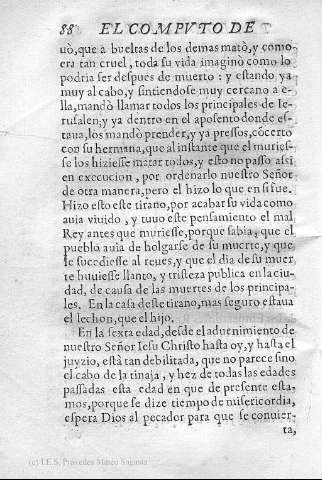 88 EL COMPVTO DE
uò, que a bueltas de los demas matò, y como
era tan cruel, toda su vida imaginò como lo
podria ser despues de muerto: y estando ya
muy al cabo, y sintiendose muy cercano a e-
lla, mandò llamar todos los principales de Ie-
rusalen; y ya dentro en el aposento donde es-
taua, los mandò prender, y ya pressos, cõcertò
con su hermana, que al instante que el muries-
se los hiziesse matar todos, y esto no passò assi
en execucion, por ordenarlo nuestro Señor
de otra manera, pero el hizo lo que en si fue.
Hizo esto este tirano, por acabar su vida como
auia viuido, y tuuo este pensamiento el mal
Rey antes que muriesse, porque sabia, que el
pueblo auia de holgarse de su muerte, y que
le sucediesse al reues, y que el dia de su muer
te huuiesse llanto, y tristeza publica en la ciu-
dad, de causa de las muertes de los principa-
les. En la casa deste tirano, mas seguro estaua
el lechon, que el hijo.
En la sexta edad, desde el aduenimiento de
nuestro Señor Iesu Christo hasta oy, y hasta el
juyzio, està tan debilitada, que no parece sino
el cabo de la tinaja, y hez de todas las edades
passadas esta edad en que de presente esta-
mos, porque se dize tiempo de misericordia,
espera Dios al pecador para que se conuier-
ta,
(c) I.E.S. Práxedes Mateo Sagasta